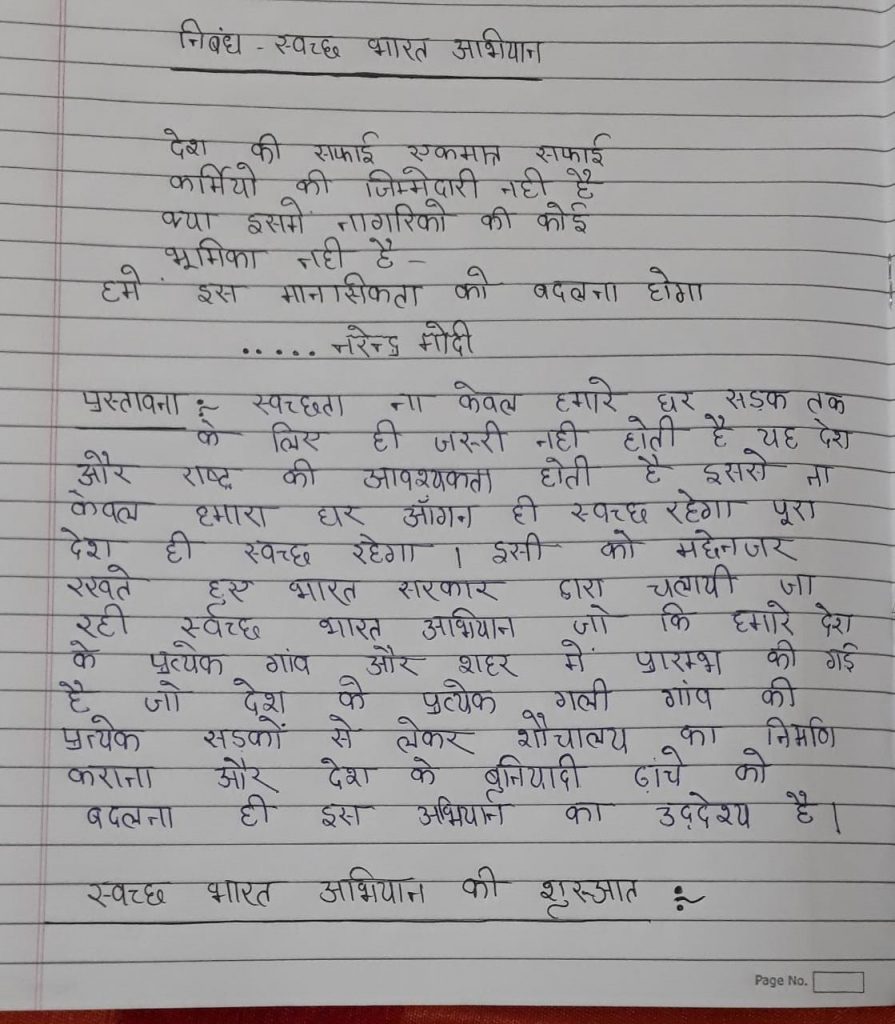 निबंध - स्वच्छ भारत अभियान
देश की सफाई एकमात्र सफाई
कर्मियो की जिम्मेदारी नही है
क्या इसमें नागरिको की कोई
भूमिका नही है -
हमे इस मानसिकता को बदलना होगा
..... नरेन्द्र मोदी
प्रस्तावना :~ स्वच्छता ना केवल हमारे घर सड़क तक
के लिए ही जरूरी नही होती है यह देश
और राष्ट्र की आवश्यकता होती है इससे ना
केवल हमारा घर आँगन ही स्वच्छ रहेगा पूरा
देश ही स्वच्छ रहेगा । इसी को मद्देनजर
रखते हुए भारत सरकार द्वारा चलायी जा
रही स्वच्छ भारत अभियान जो कि हमारे देश
के प्रत्येक गांव और शहर में प्रारम्भ की गई
है जो देश के प्रत्येक गली गांव की
प्रत्येक सड़कों से लेकर शौचालय का निर्माण
कराना और देश के बुनियादी ढांचे को
बदलना ही इस अभियान का उद्देश्य है ।
स्वच्छ भारत अभियान की शुरुआत :~
Page No.